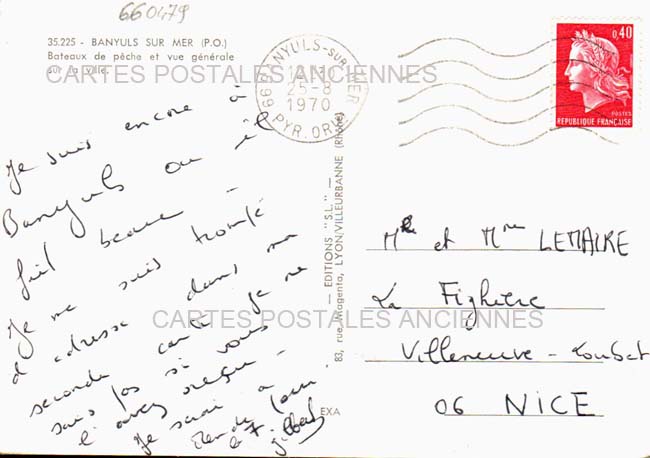 660479
35.225 - BANYULS SUR MER (P.O.)
Bateaux de pêche et vue générale
sur la ville.
CARTES POSTALES ANCIENNES
66 BANYULS-SUR-MER
25-8
1970
PYR. ORIE
0,40
POSTES
REPUBLIQUE FRANÇAISE
Je suis encore à
Banyuls ou il
fait beau -
Je me suis trompé
d'adresse dans ma
seconde carte je ne
sais pas si vous
l'avez reçue -
Je serai à
le 7
EDITIONS "S.L." -
83, rue Magenta, LYON-VILLEURBANNE (Rhône)
EXA
CARTES POSTALES ANCIENNES
et Mme LEMAIRE
La Fighière
Villeneuve - Loubet
06 NICE